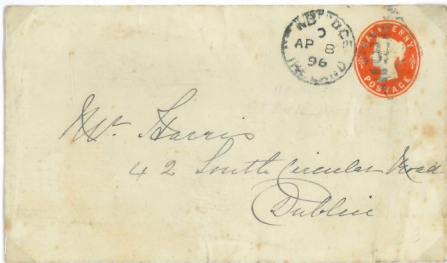 AP 8
96
HALFPENNY
POSTAGE
Mr. Harris
42 South Circular Road
Dublin